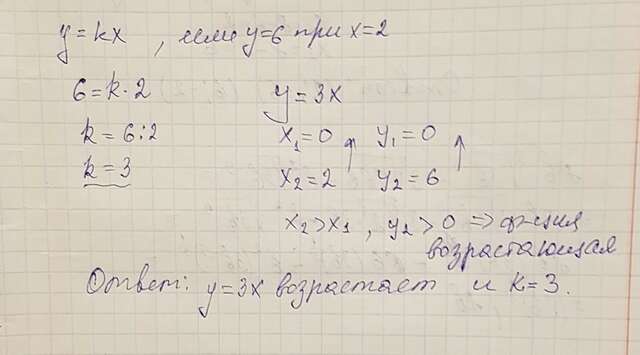 y = kx , если y=6 при x=2
6 = k · 2 y = 3x
k = 6 : 2 x₁=0 ↑ y₁=0 ↑
k = 3 x₂=2 y₂=6
x₂>x₁ , y₂ > 0 ⇒ ф-ция
возрастающая
Ответ: y=3x возрастает и k=3.